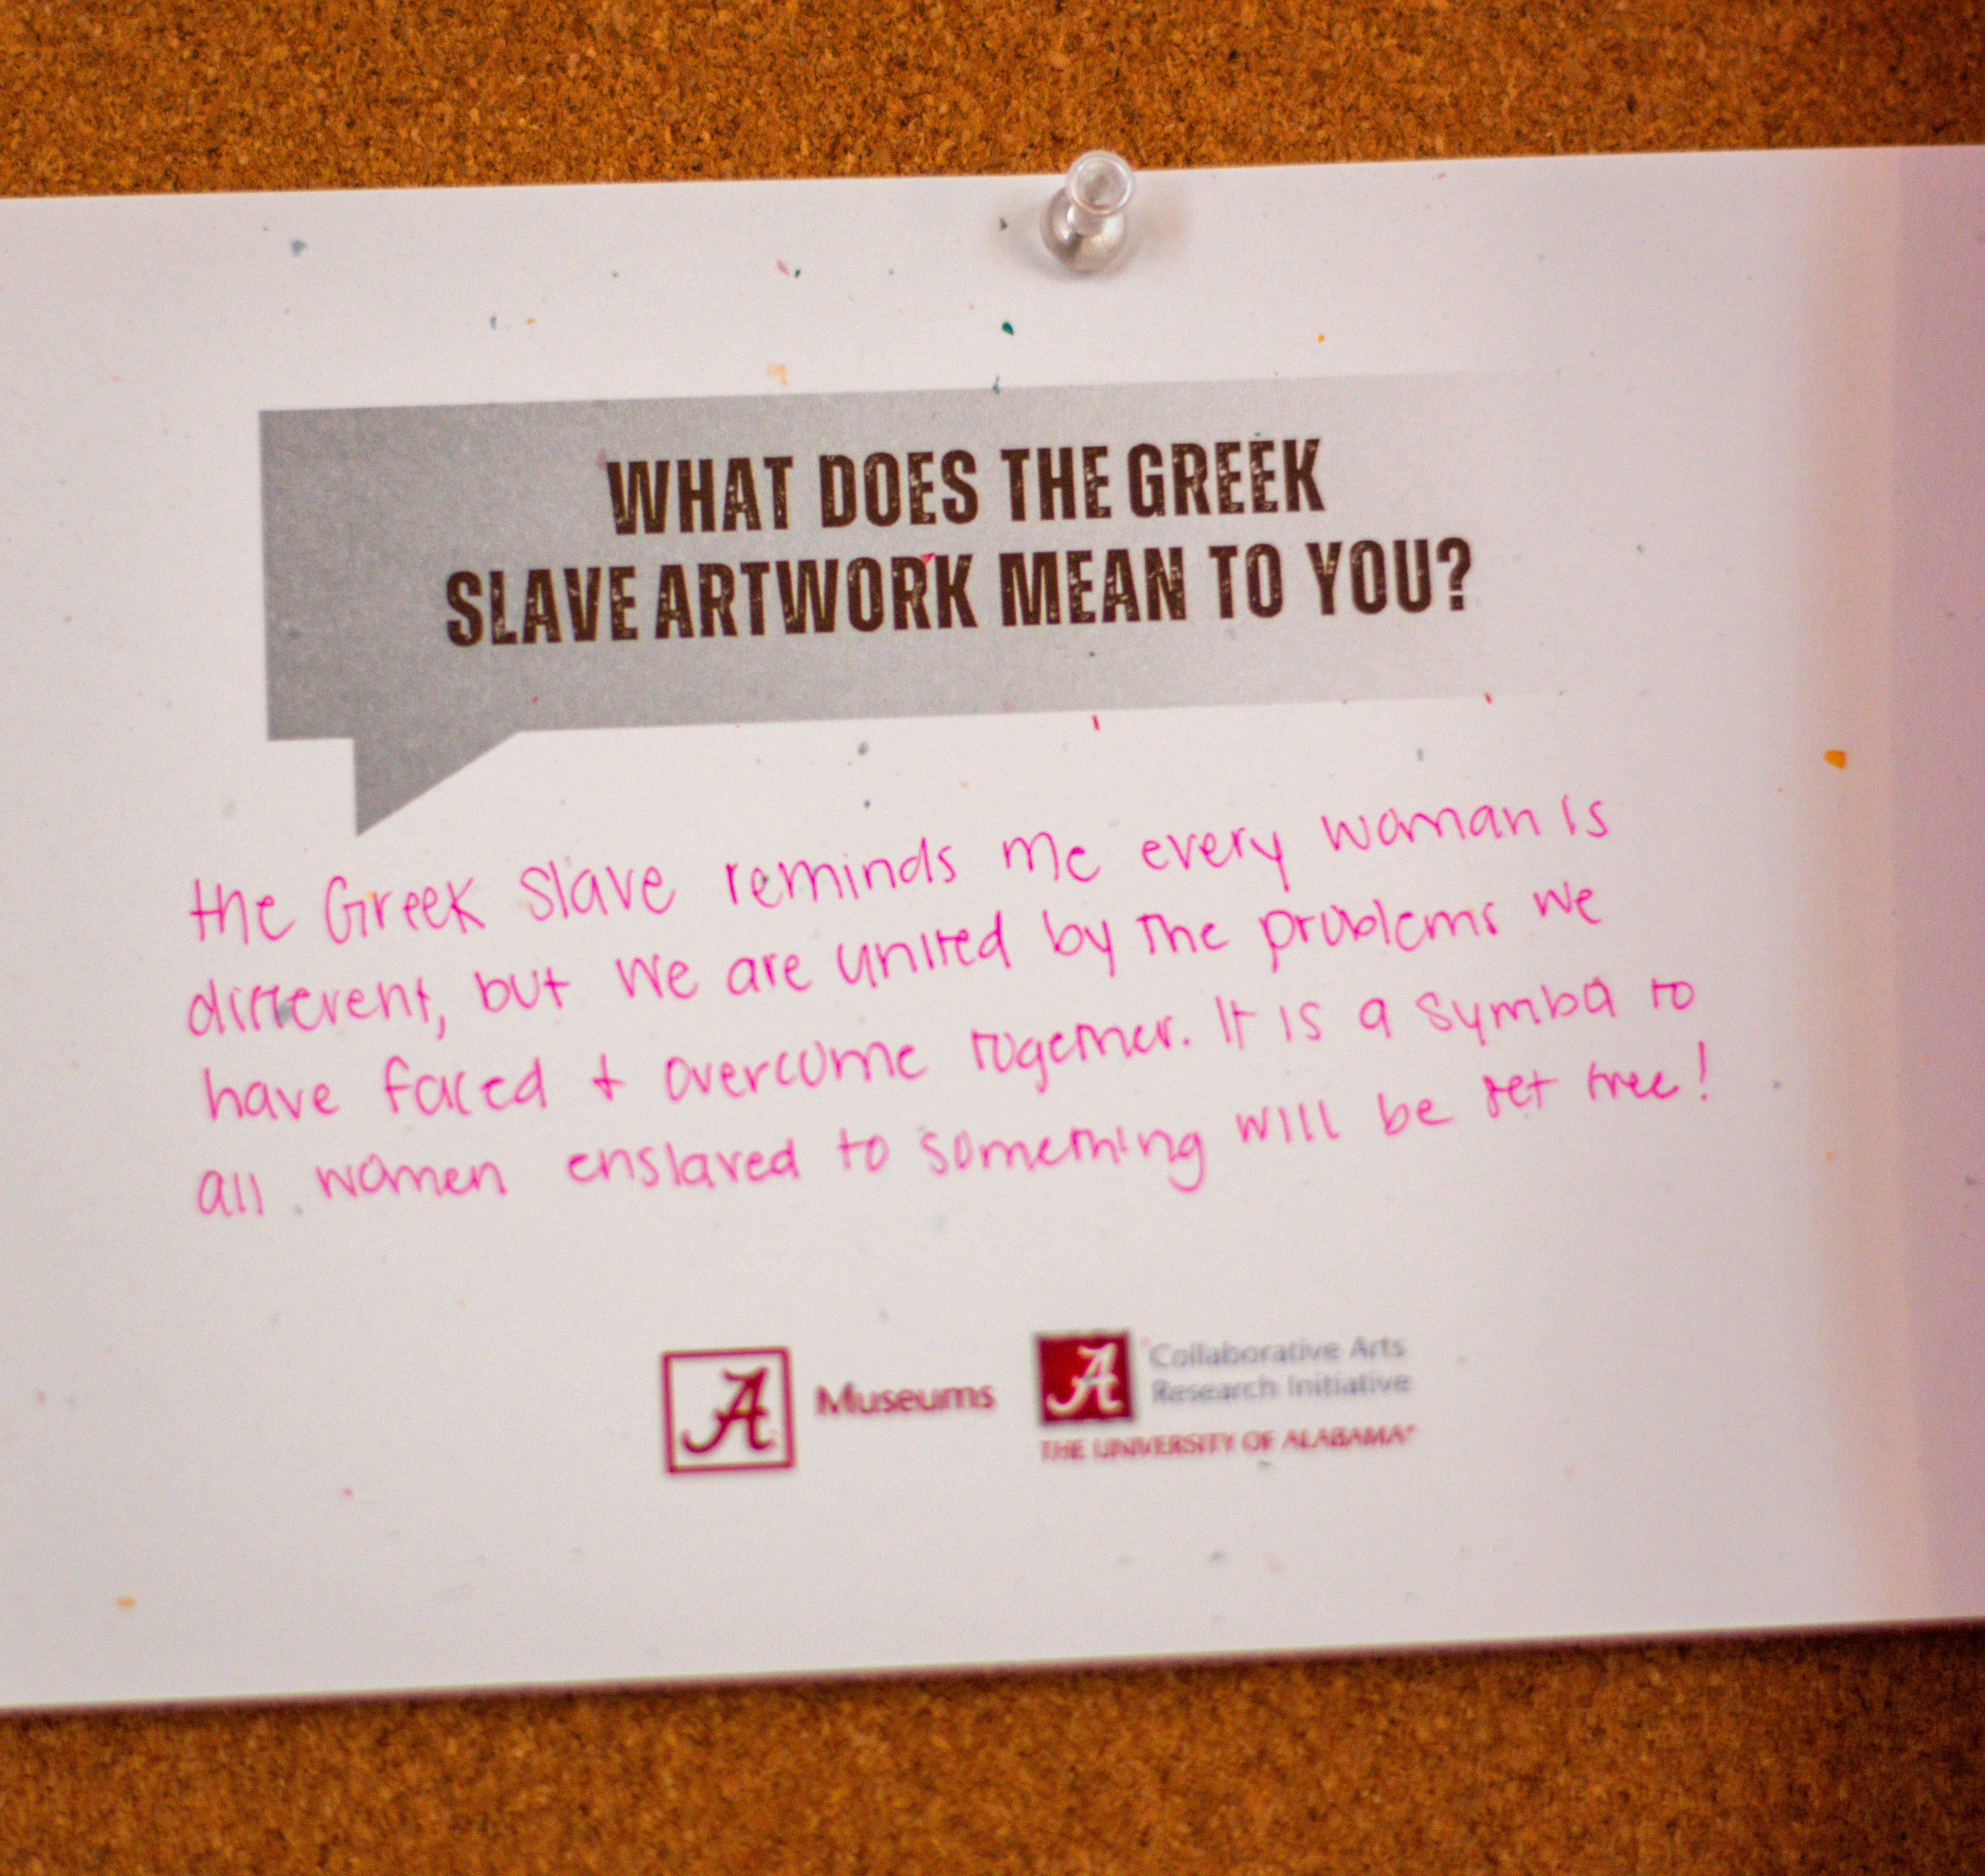 WHAT DOES THE GREEK
SLAVE ARTWORK MEAN TO YOU?
the Greek Slave reminds me every woman is
different, but we are united by the problems we
have faced + overcome together. It is a symbol to
all women enslaved to something will be set free!
A Museums
A Collaborative Arts
Research Initiative
THE UNIVERSITY OF ALABAMA®